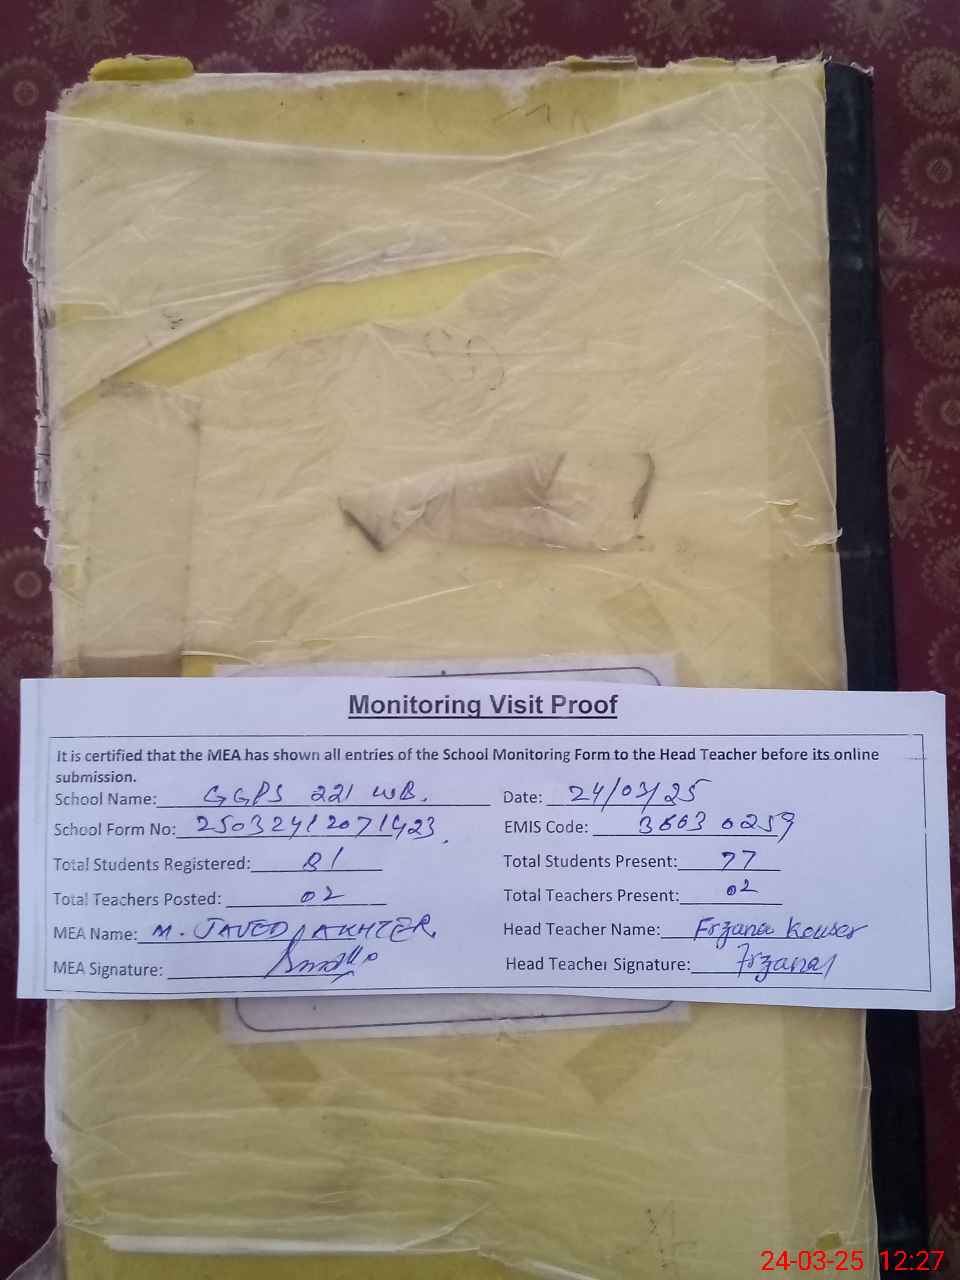 Monitoring Visit Proof
It is certified that the MEA has shown all entries of the School Monitoring Form to the Head Teacher before its online
submission.
School Name: GGPS 221 WB. Date: 24/03/25
School Form No: 25032412071423. EMIS Code: 36630259
Total Students Registered: 81 Total Students Present: 77
Total Teachers Posted: 02 Total Teachers Present: 02
MEA Name: M. JAVED AKHTER. Head Teacher Name: Frzana Kouser
MEA Signature: Head Teacher Signature: Frzana
24-03-25 12:27